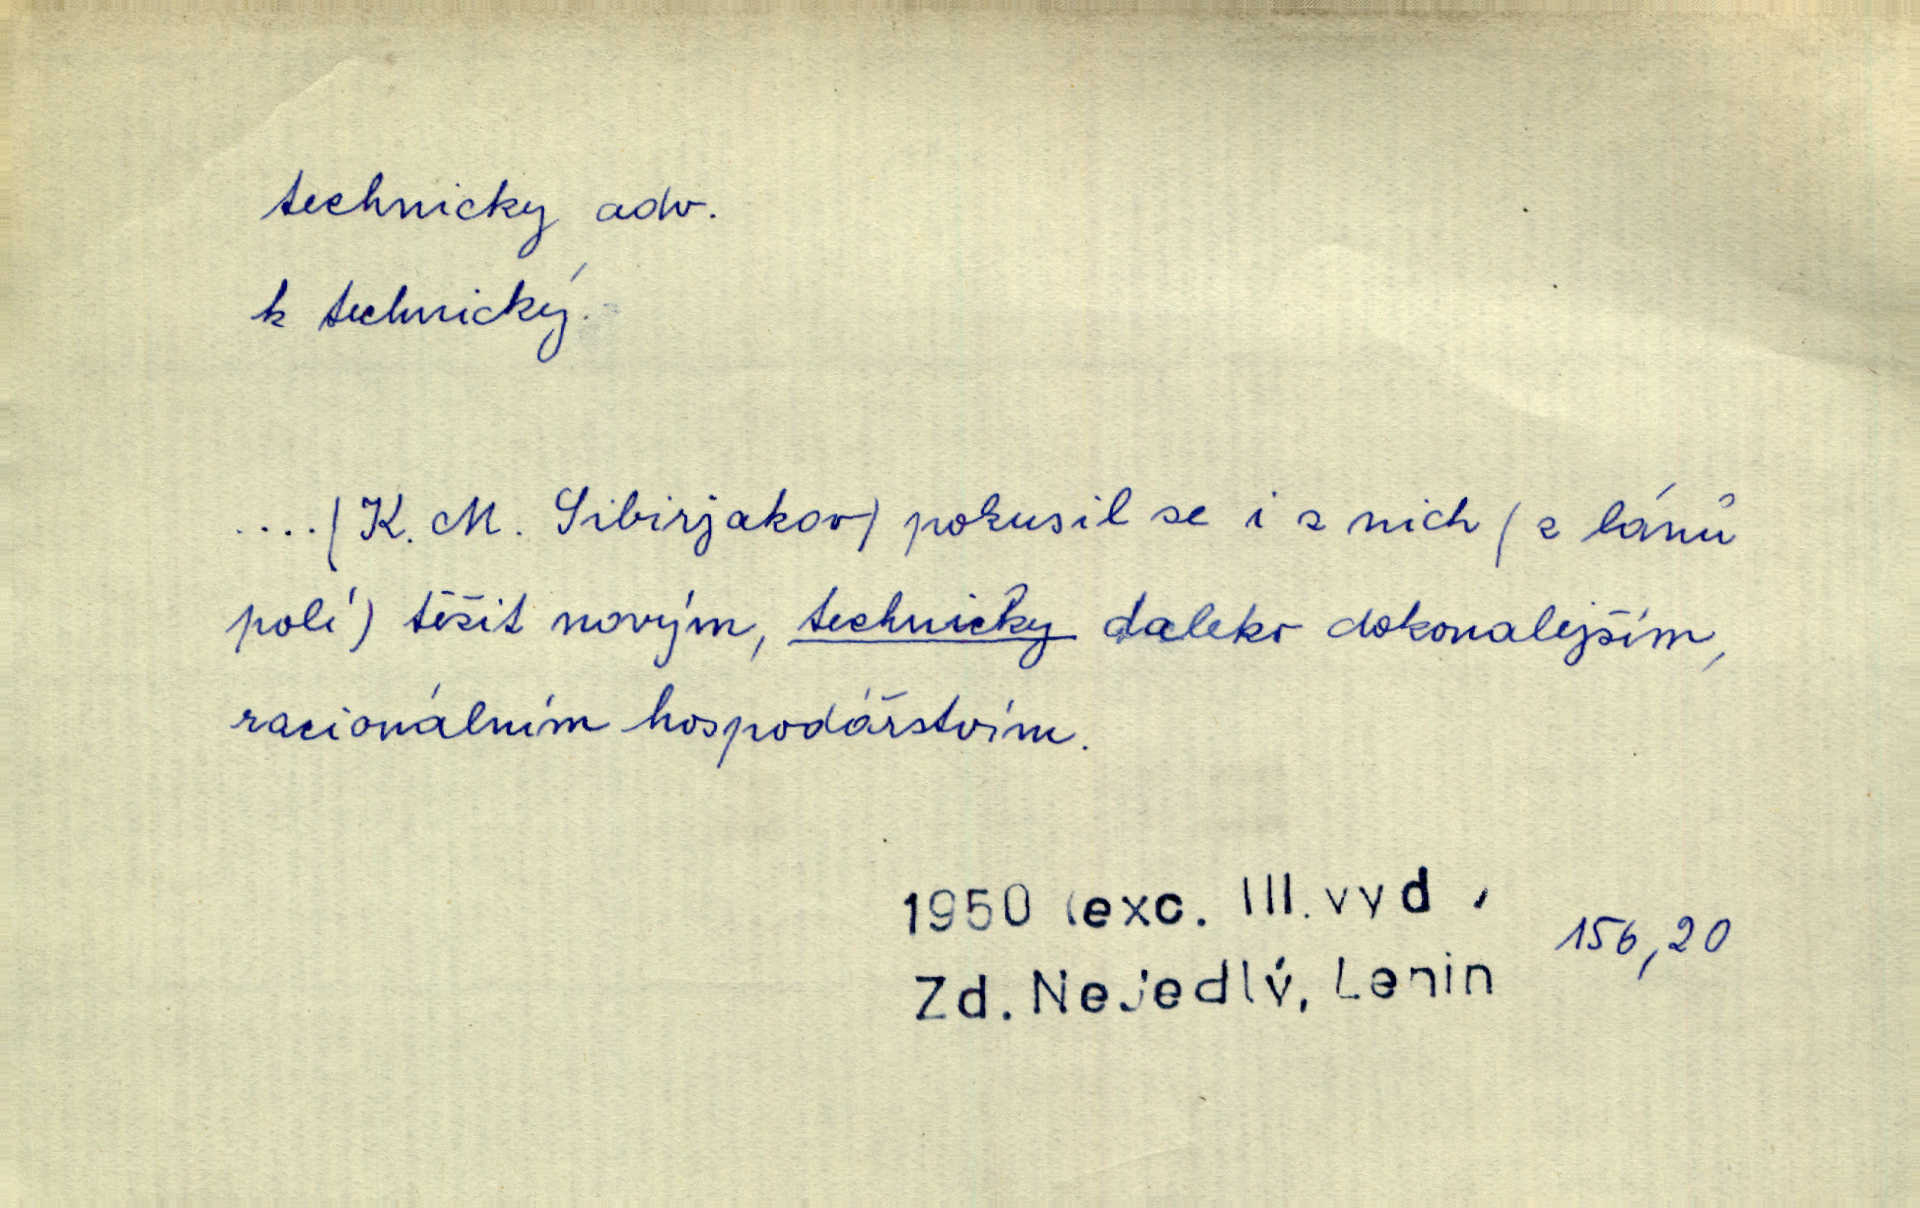 technicky adv.
k technický.
....(K. M. Sibirjakov) pokusil se i z nich (z lánů
polí) těžit novým, technicky daleko dokonalejším,
racionálním hospodářstvím.
1950 (exc. III. vyd.
156,20
Zd. Nejedlý, Lenin